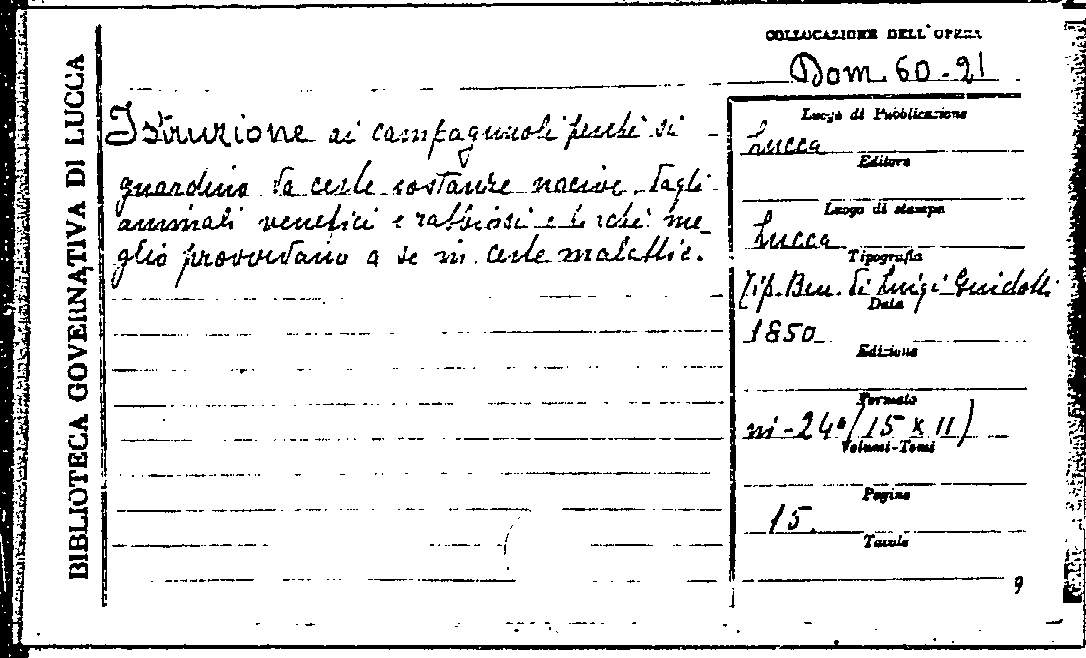 BIBLIOTECA GOVERNATIVA DI LUCCA
COLLOCAZIONE DELL'OPERA
Dom. 60-21
Istruzione ai campagnuoli perchè si
guardino da certe sostanze nocive, dagli
animali venefici e rabbiosi e perchè me_
glio provvedano a se in certe malattie.
Luogo di Pubblicazione
Lucca
Editore
Luogo di stampa
Lucca
Tipografia
Tip. Ben. di Luigi Guidotti
Data
1850
Edizione
Formato
in-24°(15 x 11)
Volumi-Tomi
Pagine
15.
Tavole
9